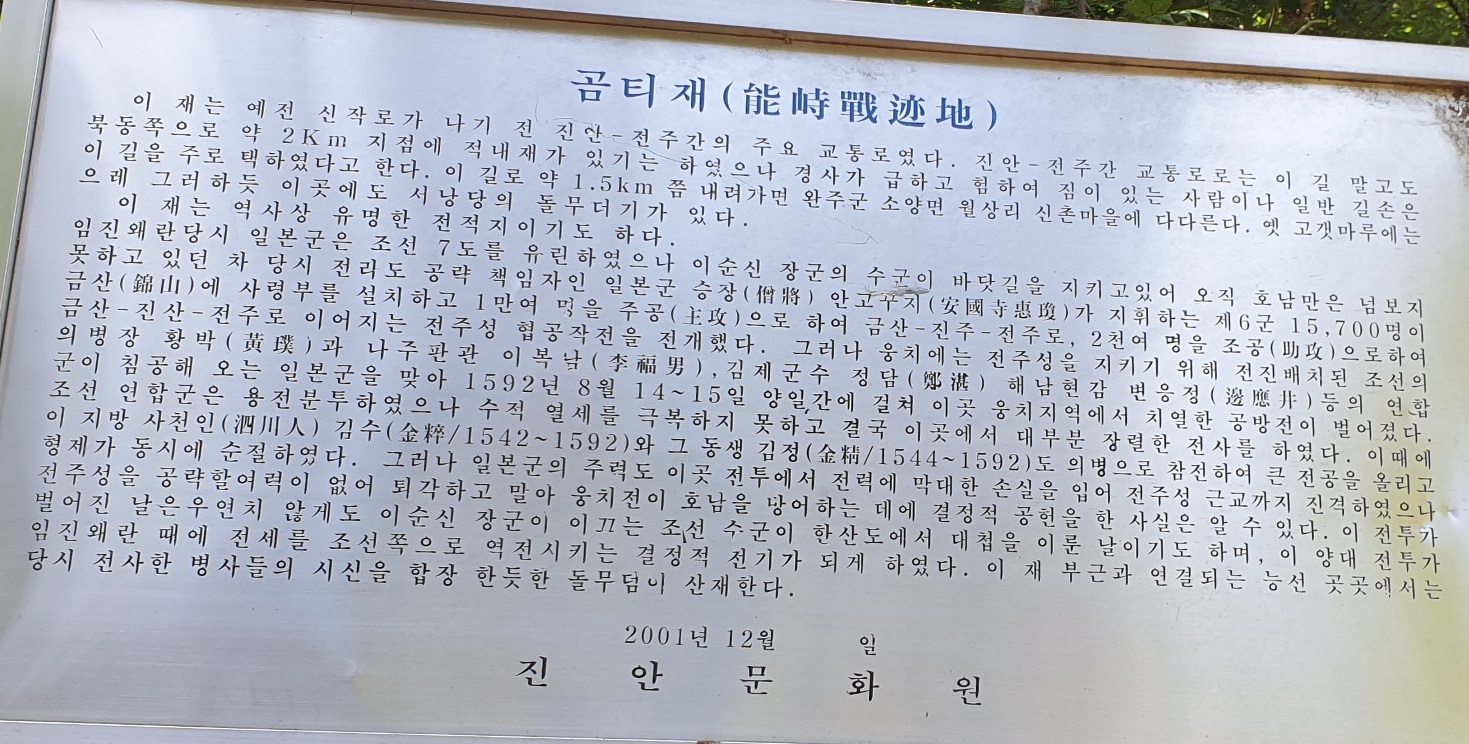 곰티재(能峙戰迹地)
이 재는 예전 신작로가 나기 전 진안-전주간의 주요 교통로였다. 진안-전주간 교통로로는 이 길 말고도
북동쪽으로 약 2Km 지점에 적내재가 있기는 하였으나 경사가 급하고 험하여 짐이 있는 사람이나 일반 길손은
이 길을 주로 택하였다고 한다. 이 길로 약 1.5km 쯤 내려가면 완주군 소양면 월상리 신촌마을에 다다른다. 옛 고갯마루에는
으레 그러하듯 이곳에도 서낭당의 돌무더기가 있다.
이 재는 역사상 유명한 전적지이기도 하다.
임진왜란당시 일본군은 조선 7도를 유린하였으나 이순신 장군의 수군이 바닷길을 지키고있어 오직 호남만은 넘보지
못하고 있던 차 당시 전라도 공략 책임자인 일본군 승장(僧將) 안고꾸지(安國寺惠瓊)가 지휘하는 제6군 15,700명이
금산(錦山)에 사령부를 설치하고 1만여 명을 주공(主攻)으로 하여 금산-진주-전주로, 2천여 명을 조공(助攻)으로하여
금산-진산-전주로 이어지는 전주성 협공작전을 전개했다. 그러나 웅치에는 전주성을 지키기 위해 전진배치된 조선의
의병장 황박(黃璞)과 나주판관 이복남(李福男),김제군수 정담(鄭湛) 해남현감 변응정(邊應井)등의 연합
군이 침공해 오는 일본군을 맞아 1592년 8월 14~15일 양일간에 걸쳐 이곳 웅치지역에서 치열한 공방전이 벌어졌다.
조선 연합군은 용전분투하였으나 수적 열세를 극복하지 못하고 결국 이곳에서 대부분 장렬한 전사를 하였다. 이때에
이 지방 사천인(泗川人) 김수(金粹/1542~1592)와 그 동생 김정(金精/1544~1592)도 의병으로 참전하여 큰 전공을 올리고
형제가 동시에 순절하였다. 그러나 일본군의 주력도 이곳 전투에서 전력에 막대한 손실을 입어 전주성 근교까지 진격하였으나
전주성을 공략할여력이 없어 퇴각하고 말아 웅치전이 호남을 방어하는 데에 결정적 공헌을 한 사실은 알 수 있다. 이 전투가
벌어진 날은우연치 않게도 이순신 장군이 이끄는 조선 수군이 한산도에서 대첩을 이룬 날이기도 하며, 이 양대 전투가
임진왜란 때에 전세를 조선쪽으로 역전시키는 결정적 전기가 되게 하였다. 이 재 부근과 연결되는 능선 곳곳에서는
당시 전사한 병사들의 시신을 합장 한듯한 돌무덤이 산재한다.
2001년 12월 일
진 안 문 화 원